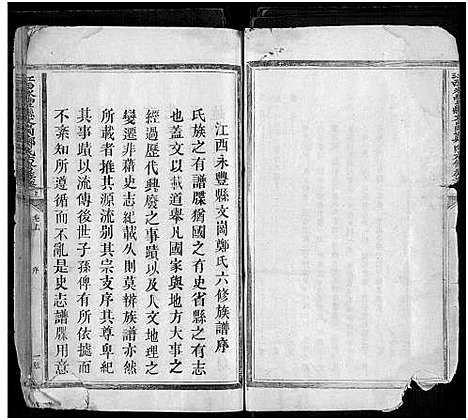 江西永豐縣文崗鄭氏六修族譜序
氏族之有譜牒猶國之有史省縣之有志
也蓋文以載道舉凡國家與地方大事之
經過歷代興廢之事蹟以及人文地理之
變遷非藉史志紀載久則莫辨族譜之
所載者推其源別其宗支序其尊卑紀
其事蹟以流傳後世子孫俾有所依據而
不紊知所遵循而不亂是史志譜牒用意
卷首
序